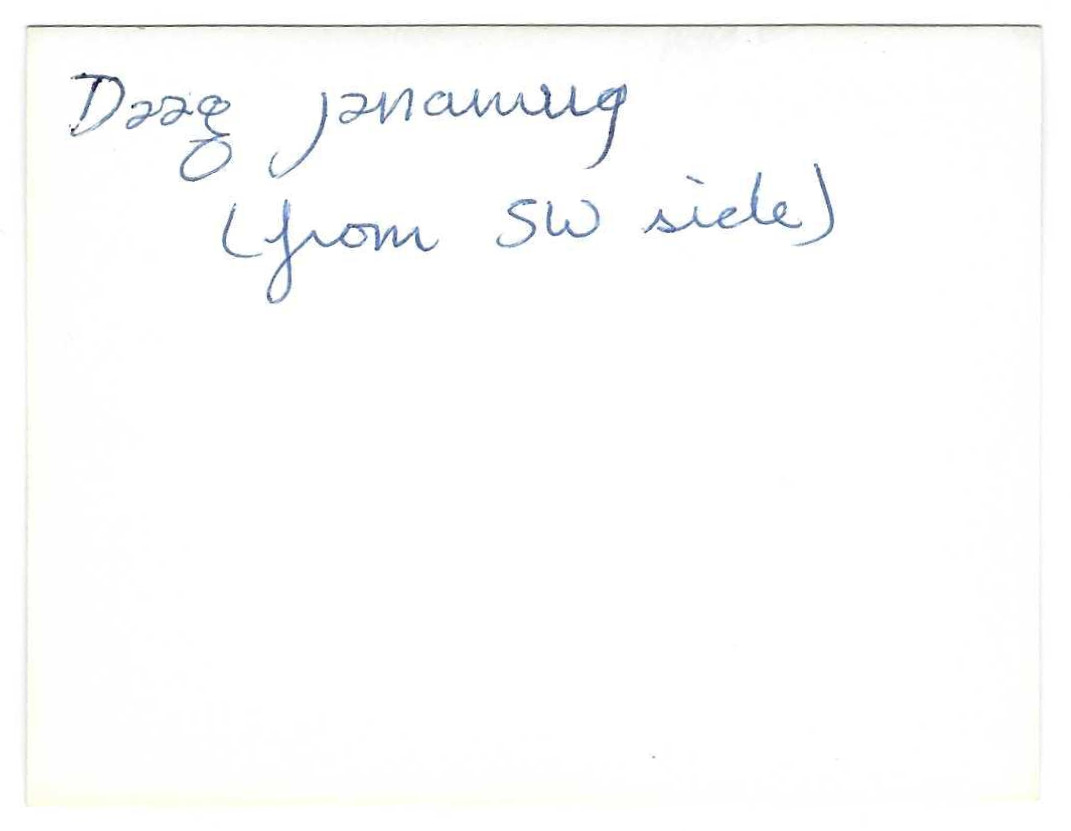 Dəəg jənamug
(from SW side)